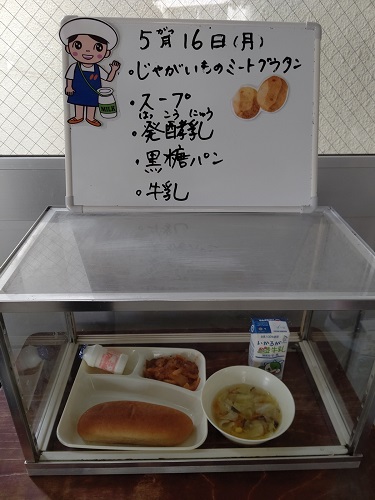 5月16日(月)
がつ
・じゃがいものミートグラタン
・スープ
はっこうにゅう
・発酵乳
・黒糖パン
・牛乳
MILK
牛乳